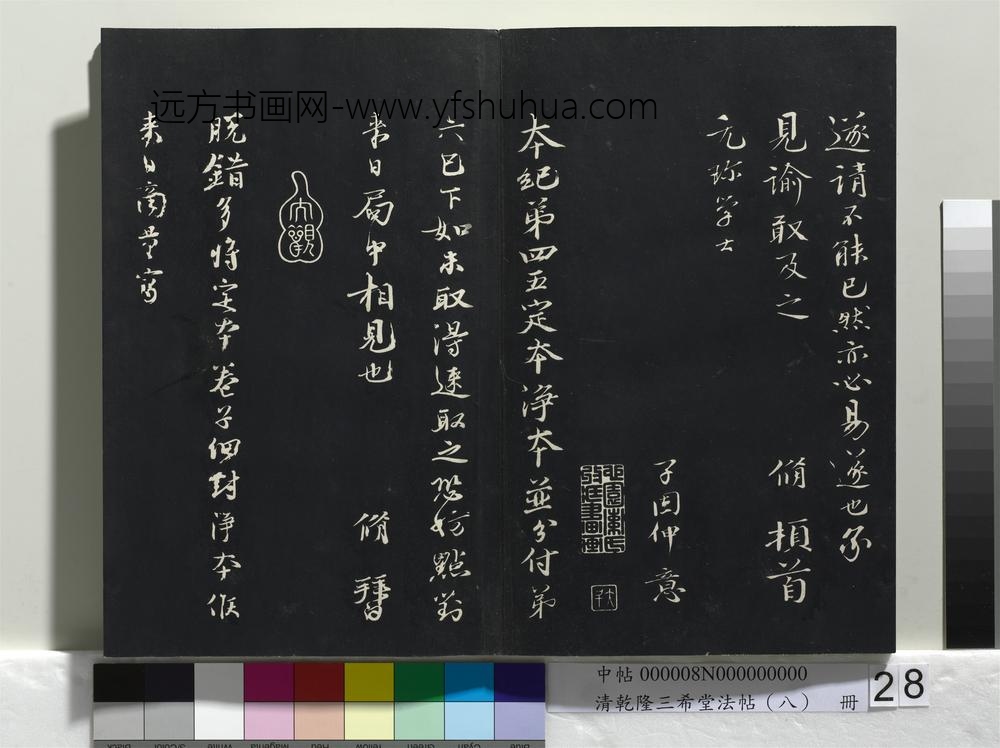 遂請不能已然亦必易遂也不
見諭敢及之 脩 頓首
元珍學士
子固伸意
本紀第四五定本淨本並分付第
六已下如未取得速取之恐妨點對
来日局中相見也 脩
大觀
脱錯多將定本卷子細封淨本候
来日商量寫
远方书画网-www.yfshuhua.com
中帖 000008N000000000
清乾隆三希堂法帖(八) 冊
28
Black
3/Color
White
Magenta
Red
Yellow
Green
Cyan
Blue